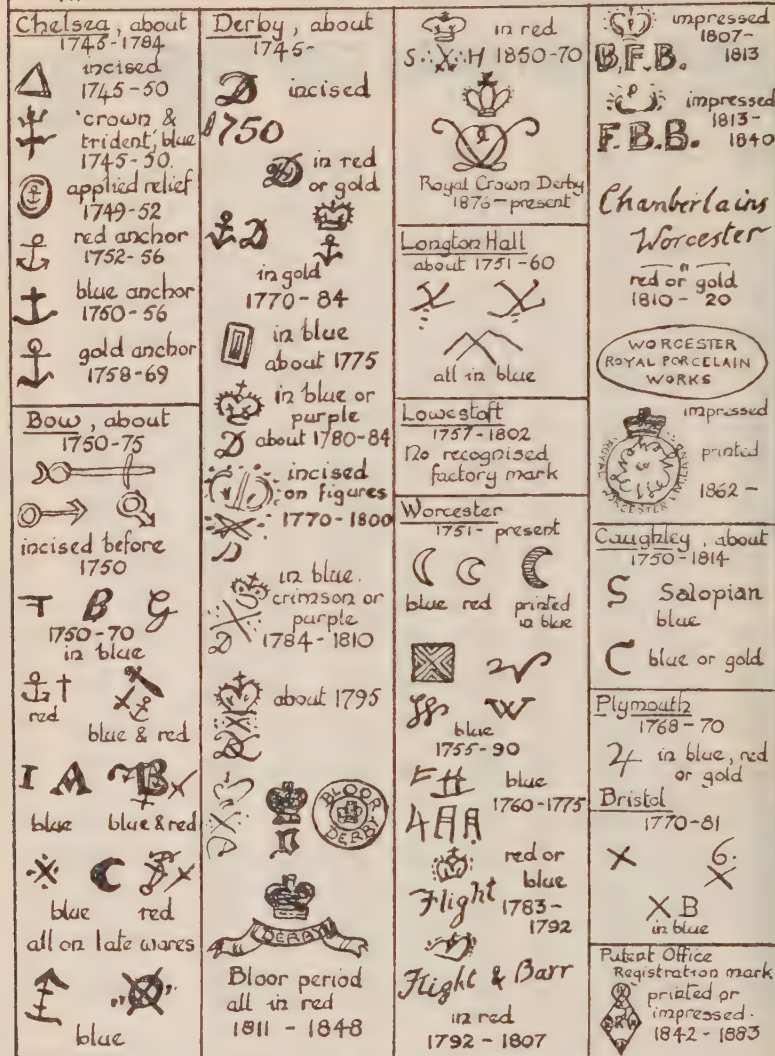 Chelsea, about
1745-1784
incised
1745-50
'crown &
trident,' blue
1745-50.
applied relief
1749-52
red anchor
1752-56
blue anchor
1750-56
gold anchor
1758-69
Bow, about
1750-75
incised before
1750
T B G
1750-70
in blue
red
blue & red
I A B
blue blue & red
blue red
all on late wares
blue
Derby, about
1745-
D incised
1750
D in red
or gold
D
in gold
1770-84
in blue
about 1775
in blue or
purple
D about 1780-84
incised
on figures
1770-1800
in blue.
crimson or
purple
D 1784-1810
about 1795
D
D
BLOOR
DERBY
DERBY
Bloor period
all in red
1811 - 1848
in red
S H 1850-70
Royal Crown Derby
1876-present
Longton Hall
about 1751-60
all in blue
Lowestoft
1757-1802
No recognised
factory mark
Worcester
1751- present
blue red printed
in blue
W W
blue
1755-90
blue
1760-1775
red or
blue
Flight 1783-
1792
Flight & Barr
in red
1792 - 1807
impressed
1807-
B.F.B. 1813
impressed
1813-
F.B.B. 1840
Chamberlains
Worcester
red or gold
1810 - 20
WORCESTER
ROYAL PORCELAIN
WORKS
impressed
printed
1862-
Caughley, about
1750-1814
S Salopian
blue
C blue or gold
Plymouth
1768-70
in blue, red
or gold
Bristol
1770-81
X 6.
X
X B
in blue
Patent Office
Registration mark
printed or
impressed.
1842-1883